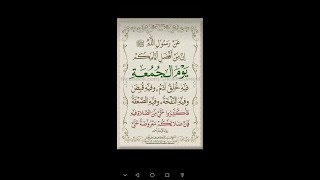 عَنْ رَسُولِ اللَّهِ ﷺ
إِنَّ مِنْ أَفْضَلِ أَيَّامِكُمْ
يَوْمَ الْجُمُعَةِ
فِيهِ خُلِقَ آدَمُ، وَفِيهِ قُبِضَ
وَفِيهِ النَّفْخَةُ، وَفِيهِ الصَّعْقَةُ
فَأَكْثِرُوا عَلَيَّ مِنَ الصَّلَاةِ فِيهِ
فَإِنَّ صَلَاتَكُمْ مَعْرُوضَةٌ عَلَيَّ